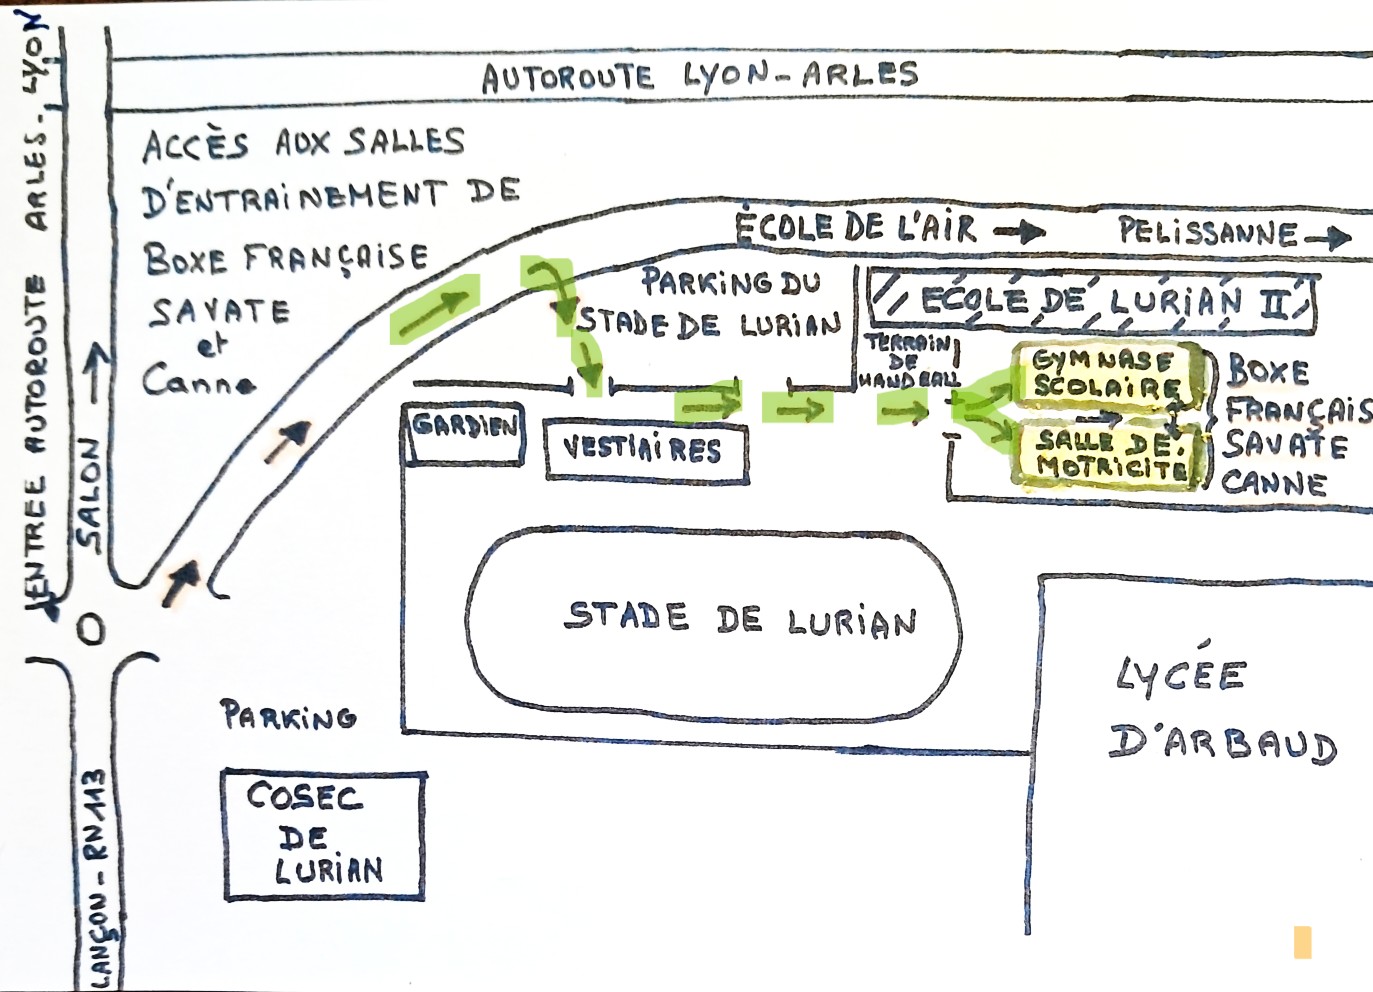 ENTREE AUTOROUTE ARLES-LYON
SALON
AUTOROUTE LYON-ARLES
ACCÈS AUX SALLES
D'ENTRAINEMENT DE
BOXE FRANÇAISE
SAVATE
et
Canne
ÉCOLE DE L'AIR
PELISSANNE
PARKING DU
STADE DE LURIAN
ÉCOLE DE LURIAN II
TERRAIN
DE
HANDBALL
GYMNASE
SCOLAIRE
SALLE DE
MOTRICITE
BOXE
FRANÇAIS
SAVATE
CANNE
GARDIEN
VESTIAIRES
STADE DE LURIAN
LYCÉE
D'ARBAUD
PARKING
COSEC
DE
LURIAN
LANÇON-RN113